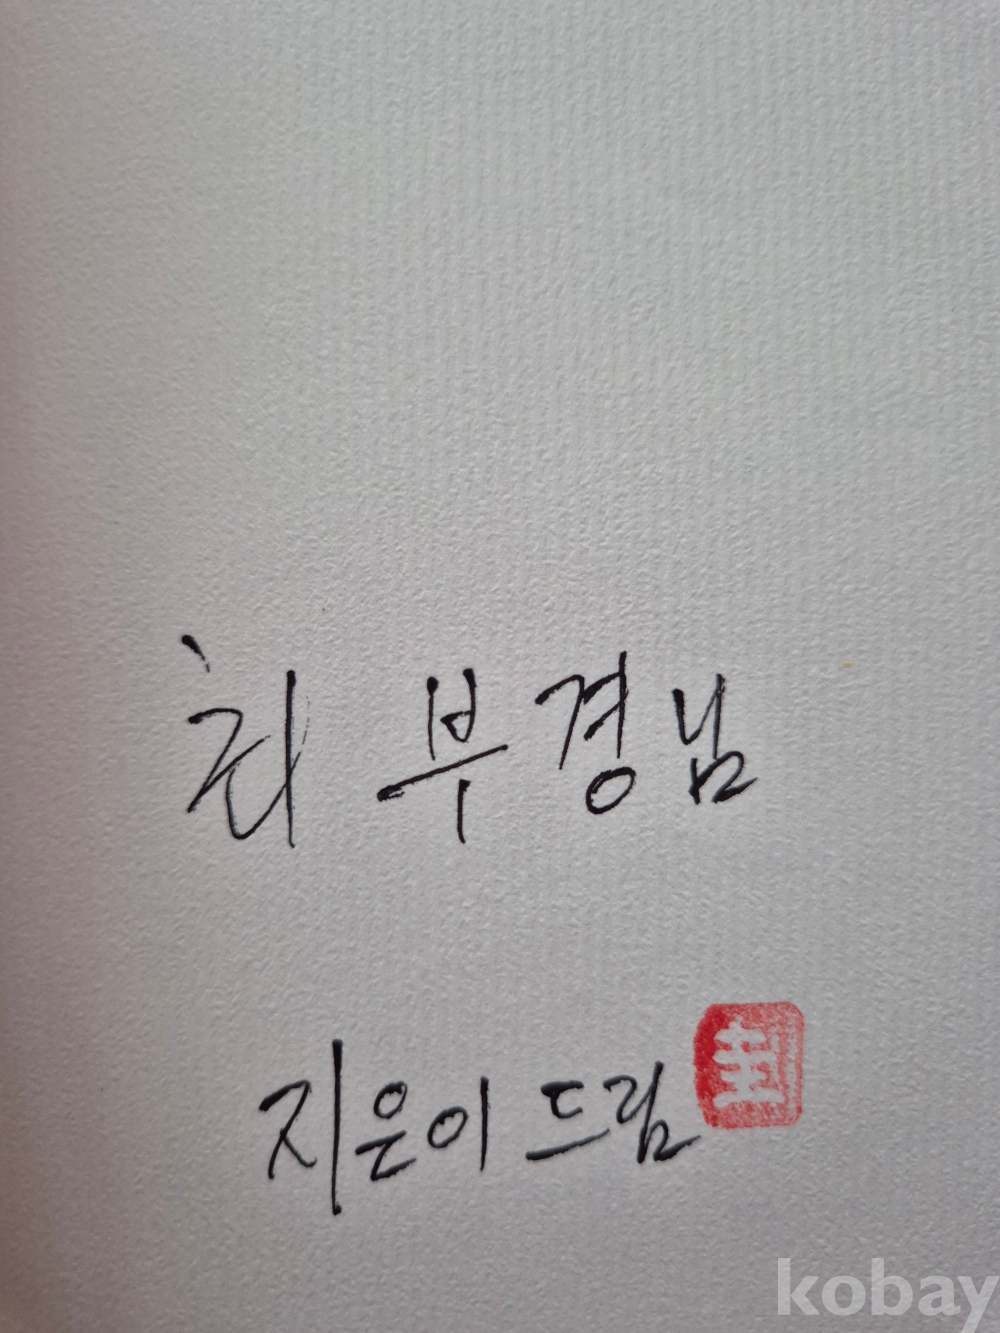 최 부경님
지은이 드림
kobay